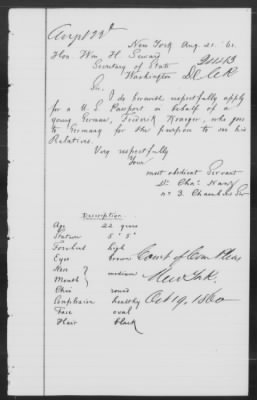 New York Aug. 21. 61.
Hon Wm. H. Seward
Secretary of State
Washington D.C.
Sir.
I do herewith respectfully apply
for a U.S. Passport on behalf of a
young German, Frederik Krueger, who goes
to Germany for the purpose to see his
Relatives.
Very respectfully
Your
most obedient Servant
No 3. Chambers Str
Description.
Age 22 years
Stature 5' 5"
Forehead high
Eyes brown
Nose }
Mouth } medium
Chin round
Complexion healthy
Face oval
Hair black
Court of Com Pleas
New York.
Oct 19, 1860